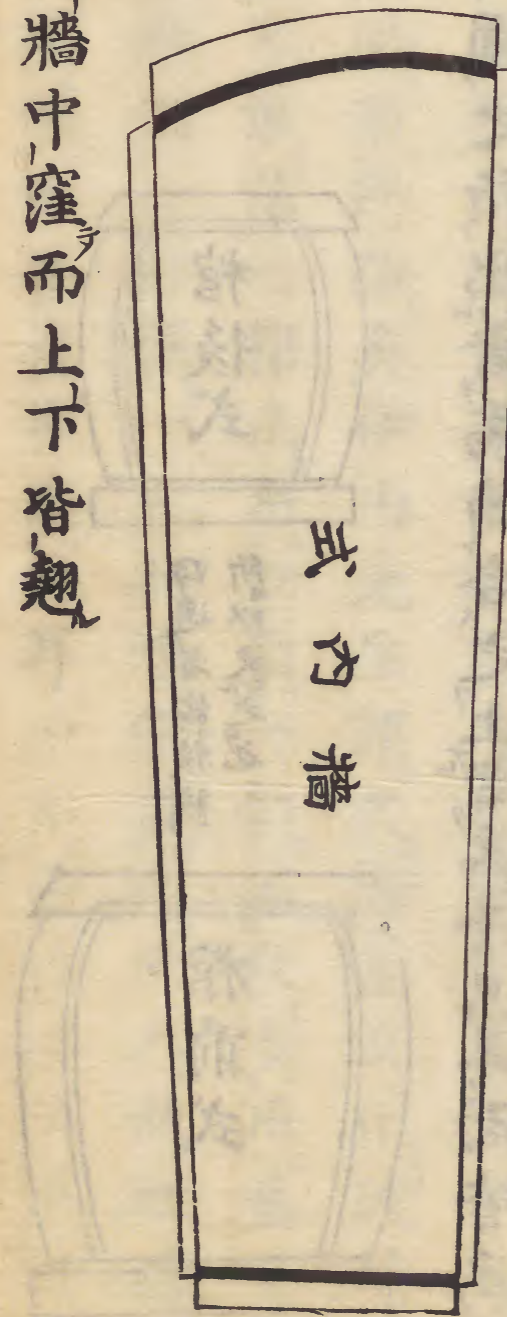 牆内式
牆中窪テ而上下皆翹ル